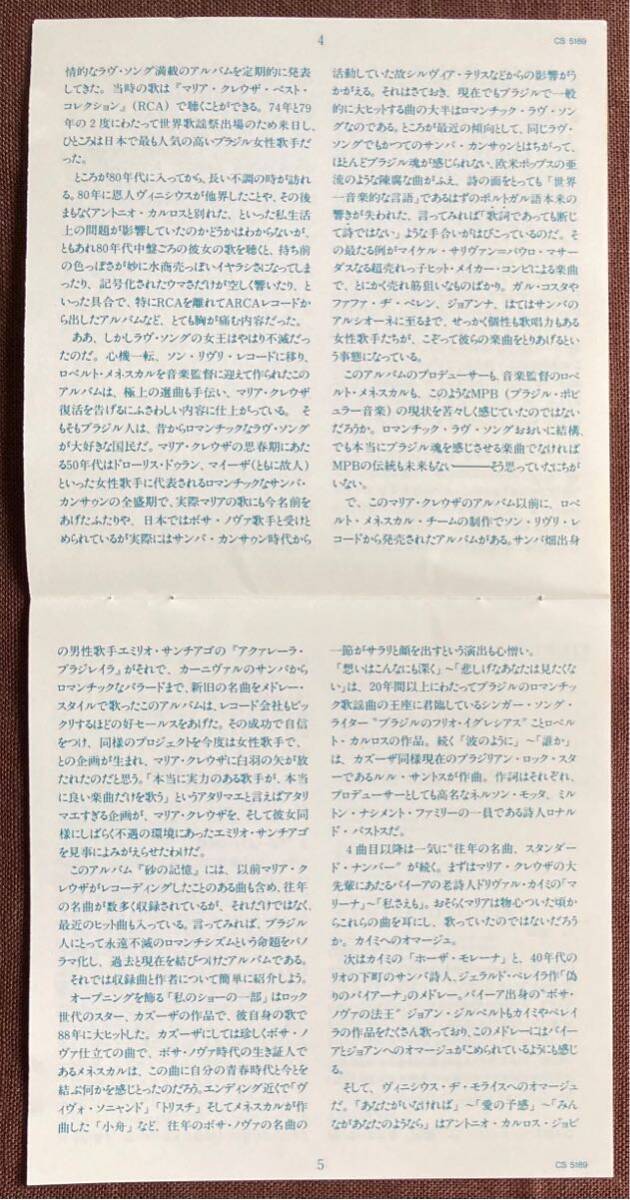 4
CS 5189
情的なラヴ・ソング満載のアルバムを定期的に発表
してきた。当時の歌は『マリア・クレウザ・ベスト・
コレクション』(RCA)で聴くことができる。74年と79
年の2度にわたって世界歌謡祭出場のため来日し、
ひところは日本で最も人気の高いブラジル女性歌手だ
った。
ところが80年代に入ってから、長い不調の時が訪れ
る。80年に恩人ヴィニシウスが他界したことや、その後
まもなくアントニオ・カルロスと別れた、といった私生活
上の問題が影響していたのかどうかはわからないが、
ともあれ80年代中盤ごろの彼女の歌を聴くと、持ち前
の色っぽさが妙に水商売っぽいイヤラシさになってしま
ったり、記号化されたウマさだけが空しく響いたり、と
いった具合で、特にRCAを離れてARCAレコードか
ら出したアルバムなど、とても胸が痛む内容だった。
ああ、しかしラヴ・ソングの女王はやはり不滅だっ
たのだ。心機一転、ソン・リヴリ・レコードに移り、
ロベルト・メネスカルを音楽監督に迎えて作られたこの
アルバムは、極上の選曲も手伝い、マリア・クレウザ
復活を告げるにふさわしい内容に仕上がっている。そ
もそもブラジル人は、昔からロマンチックなラヴ・ソング
が大好きな国民だ。マリア・クレウザの思春期にあた
る50年代はドローリス・ドゥラン、マイーザ(ともに故人)
といった女性歌手に代表されるロマンチックなサンバ・
カンサゥンの全盛期で、実際マリアの歌にも今名前を
あげたふたりや、日本ではボサ・ノヴァ歌手と受けと
められているが実際にはサンバ・カンサゥン時代から
活動していた故シルヴィア・テリスなどからの影響がう
かがえる。それはさておき、現在でもブラジルで一般
的に大ヒットする曲の大半はロマンチック・ラヴ・ソン
グなのである。ところが最近の傾向として、同じラヴ・
ソングでもかつてのサンバ・カンサゥンとはちがって、
ほとんどブラジル魂が感じられない、欧米ポップスの亜
流のような陳腐な曲がふえ、詩の面をとっても「世界
一音楽的な言語」であるはずのポルトガル語本来の
響きが失われた、言ってみれば「歌詞であっても断じ
て詩ではない」ような手合いがはびこっているのだ。そ
の最たる例がマイケル・サリヴァン=パウロ・マサー
ダスなる超売れっ子ヒット・メイカー・コンビによる楽曲
で、とにかく売れ筋狙いなものばかり。ガル・コスタや
ファファ・ヂ・ベレン、ジョアンナ、はてはサンバの
アルシオーネに至るまで、せっかく個性も歌唱力もある
女性歌手たちが、こぞって彼らの楽曲をとりあげるとい
う事態になっている。
このアルバムのプロデューサーも、音楽監督のロベ
ルト・メネスカルも、このようなMPB(ブラジル・ポピ
ュラー音楽)の現状を苦々しく感じていたのではない
だろうか。ロマンチック・ラヴ・ソングおおいに結構、
でも本当にブラジル魂を感じさせる楽曲でなければ
MPBの伝統も未来もない———そう思っていたにちが
いない。
で、このマリア・クレウザのアルバム以前に、ロベ
ルト・メネスカル・チームの制作でソン・リヴリ・レ
コードから発売されたアルバムがある。サンバ畑出身
の男性歌手エミリオ・サンチアゴの『アクァレーラ・
ブラジレイラ』がそれで、カーニヴァルのサンバから
ロマンチックなバラードまで、新旧の名曲をメドレー・
スタイルで歌ったこのアルバムは、レコード会社もビッ
クリするほどの好セールスをあげた。その成功で自信
をつけ、同様のプロジェクトを今度は女性歌手で、
との企画が生まれ、マリア・クレウザに白羽の矢が放
たれたのだと思う。「本当に実力のある歌手が、本当
に良い楽曲だけを歌う」というアタリマエと言えばアタリ
マエすぎる企画が、マリア・クレウザを、そして彼女同
様にしばらく不遇の環境にあったエミリオ・サンチアゴ
を見事によみがえらせたわけだ。
このアルバム『砂の記憶』には、以前マリア・ク
レウザがレコーディングしたことのある曲も含め、往年
の名曲が数多く収録されているが、それだけではなく、
最近のヒット曲も入っている。言ってみれば、ブラジル
人にとって永遠不滅のロマンチシズムという命題をパノ
ラマ化し、過去と現在を結びつけたアルバムである。
それでは収録曲と作者について簡単に紹介しよう。
オープニングを飾る「私のショーの一部」はロック
世代のスター、カズーザの作品で、彼自身の歌で
88年に大ヒットした。カズーザにしては珍しくボサ・ノ
ヴァ仕立ての曲で、ボサ・ノヴァ時代の生き証人で
あるメネスカルは、この曲に自分の青春時代と今とを
結ぶ何かを感じとったのだろう。エンディング近くで「ヴ
ィヴォ・ソニャンド」「トリスチ」そしてメネスカルが作
曲した「小舟」など、往年のボサ・ノヴァの名曲の
一節がサラリと顔を出すという演出も心憎い。
「想いはこんなにも深く」~「悲しげなあなたは見たくな
い」は、20年間以上にわたってブラジルのロマンチッ
ク歌謡曲の王座に君臨しているシンガー・ソング・
ライター“ブラジルのフリオ・イグレシアス”ことロベル
ト・カルロスの作品。続く「波のように」~「誰か」
は、カズーザ同様現在のブラジリアン・ロック・スタ
ーであるルル・サントスが作曲。作詞はそれぞれ、
プロデューサーとしても高名なネルソン・モッタ、ミル
トン・ナシメント・ファミリーの一員である詩人ロナル
ド・バストスだ。
4曲目以降は一気に“往年の名曲、スタンダー
ド・ナンバー”が続く。まずはマリア・クレウザの大
先輩にあたるバイーアの老詩人ドリヴァル・カイミの「マ
リーナ」~「私さえも」。おそらくマリアは物心ついた頃か
らこれらの曲を耳にし、歌っていたのではないだろう
か。カイミへのオマージュ。
次はカイミの「ホーザ・モレーナ」と、40年代の
リオの下町のサンバ詩人、ジェラルド・ペレイラ作「偽
りのバイアーナ」のメドレー。バイーア出身の“ボサ・
ノヴァの法王”ジョアン・ジルベルトもカイミやペレイ
ラの作品をたくさん歌っており、このメドレーにはバイーア
とジョアンへのオマージュがこめられているようにも感じ
る。
そして、ヴィニシウス・ヂ・モライスへのオマージュ
だ。「あなたがいなければ」~「愛の予感」~「みん
ながあなたのようなら」はアントニオ・カルロス・ジョビ
5
CS 5189